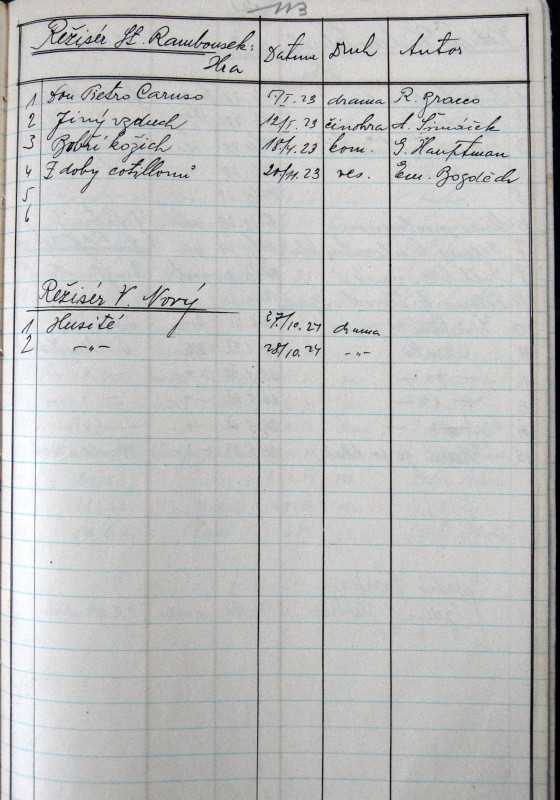 113
Režisér St. Rambousek: Datum Druh Autor
Hra
1 Don Pietro Caruso 7/I. 23 drama R. Bracco
2 Jiný vzduch 12/I. 23 činohra A. Šimáček
3 Bobří kožich kom. G. Hauptman
4 Z doby cotillonů ves. Em. Bozděch
5
6
Režisér V. Nový
1 Husité 27/10. 24 drama
2 -„- 28/10. 24 -„-